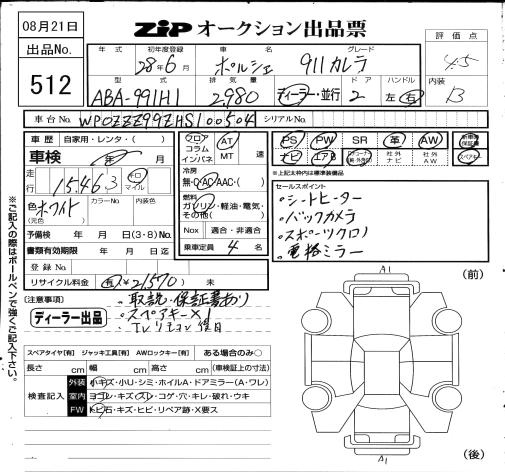 08月21日
ZiP オークション出品票
出品No.
512
年式 初年度登録 車名 グレード
28年6月 ポルシェ 911カレラ
型式 排気量 ドア ハンドル
ABA-991H1 2,980 ディーラー・並行 2 左 右
評価点
4.5
内装
B
車台No. WP0ZZZ99ZHS100504 シリアルNo.
車歴 自家用・レンタ・( )
車検 年 月
走行 15,463 キロ マイル
色 ホワイト (元色) カラーNo. 内装色
予備検 年 月 日(3・8)No.
書類有効期限 年 月 日迄
登録No.
リサイクル料金 有(¥21,570) 未
フロア コラム インパネ AT MT 速
冷房
無・C・AC・AAC・( )
燃料
ガソリン・軽油・電気・その他( )
Nox 適合・非適合
乗車定員 4 名
PS PW SR 革 AW
ナビ エアB 社外ナビ 社外AW
新車時保証書
スペアキー
※上記太枠内は標準装備品
セールスポイント
・シートヒーター
・バックカメラ
・スポーツクロノ
・電格ミラー
(注意事項)
・取説・保証書あり
・スペアキー×1
ディーラー出品
※ご記入の際はボールペンで強くご記入下さい。
スペアタイヤ[有] ジャッキ工具[有] AWロックキー[有] ある場合のみ○
長さ cm 幅 cm 高さ cm (車検証上の寸法)
検査記入
外装 小キズ・小U・シミ・ホイルA・ドアミラー(A・ワレ)
室内 ヨゴレ・キズ・スレ・コゲ・穴・キレ・破れ・ウキ
FW トビ石・キズ・ヒビ・リペア跡・X要ス
A1
(前)
A1
(後)